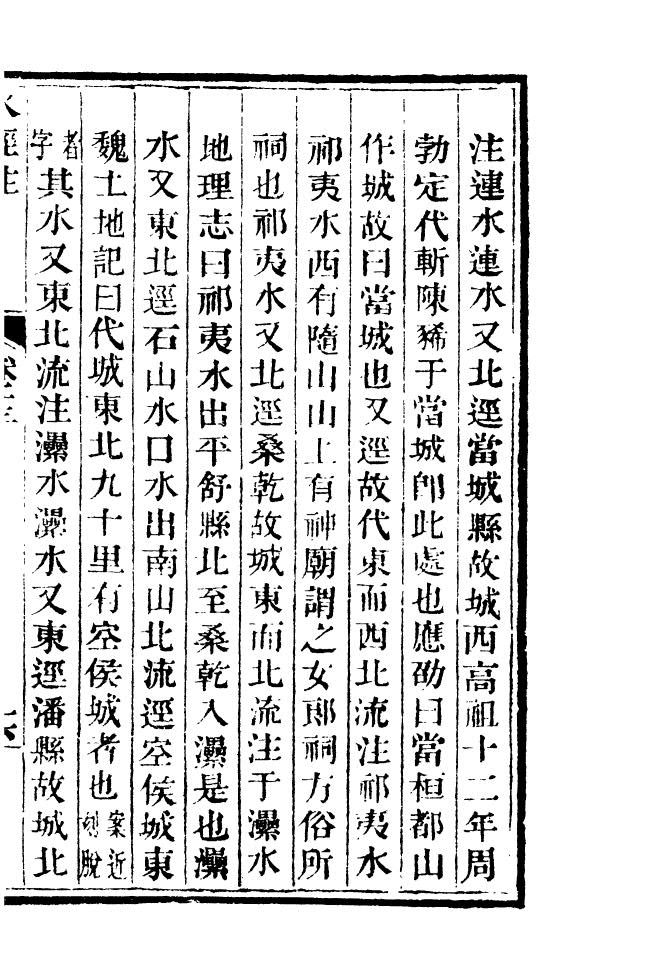 注連水連水又北逕當城縣故城西高祖十二年周
勃定代斬陳豨于當城卽此處也應劭曰當桓都山
作城故曰當城也又逕故代東而西北流注祁夷水
祁夷水西有隨山山上有神廟謂之女郎祠方俗所
祠也祁夷水又北逕桑乾故城東而北流注于㶟水
地理志曰祁夷水出平舒縣北至桑乾入㶟是也㶟
水又東北逕石山水口水出南山北流逕空侯城東
魏土地記曰代城東北九十里有空侯城者也案近刻脫
者字其水又東北流注㶟水㶟水又東逕潘縣故城北
水經注 卷十三